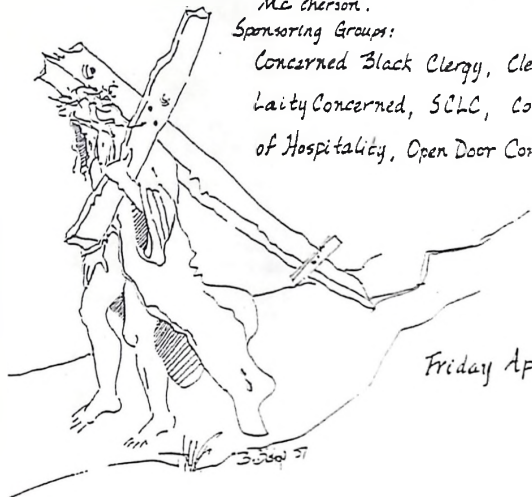 Mc Pherson.
Sponsoring Groups:
Concerned Black Clergy, Cle
Laity Concerned, SCLC, Co
of Hospitality, Open Door Com
Friday Ap